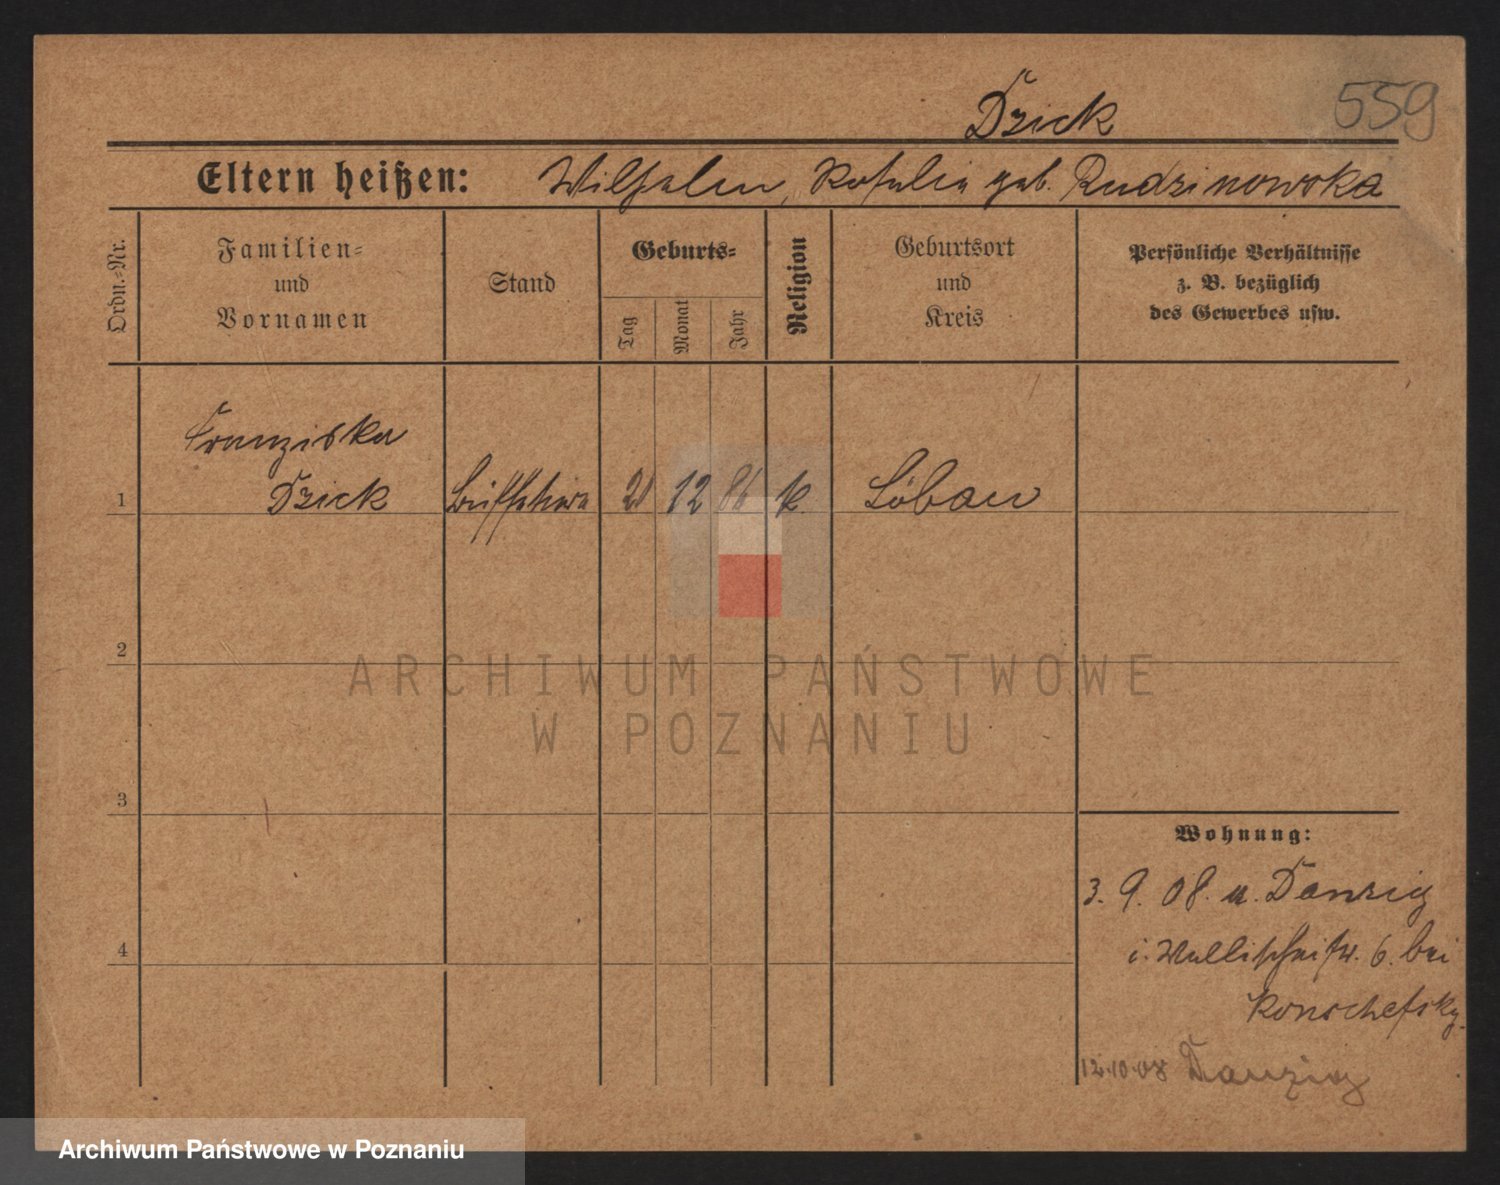 559
Dzick
Eltern heißen: Wilhelm, Rosalia geb. Rudzinowska
Ordn.-Nr.
Familien- und Vornamen
Stand
Geburts-
Tag
Monat
Jahr
Religion
Geburtsort und Kreis
Persönliche Verhältnisse
z. B. bezüglich
des Gewerbes usw.
Franziska
1 Dzick 21 12 86 k. Löbau
2
ARCHIWUM PAŃSTWOWE
W POZNANIU
3
Wohnung:
3. 9. 08. a. Danzig
i. Wallischeistr. 6. bei
Konschefsky.
4
12.10.08 Danzig
Archiwum Państwowe w Poznaniu